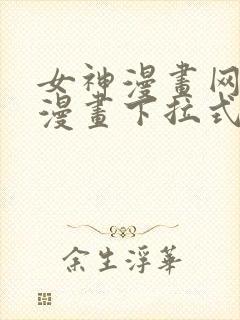 女神漫畫网
漫畫下拉式
余生浮華